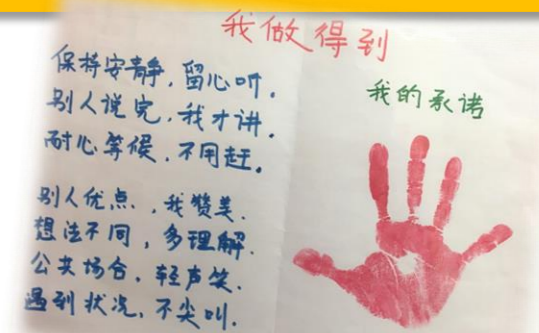 我做得到
保持安静，留心听。
别人说完，我才讲。
耐心等候，不用赶。
别人优点，我赞美。
想法不同，多理解。
公共场合，轻声笑。
遇到状况，不尖叫。
我的承诺